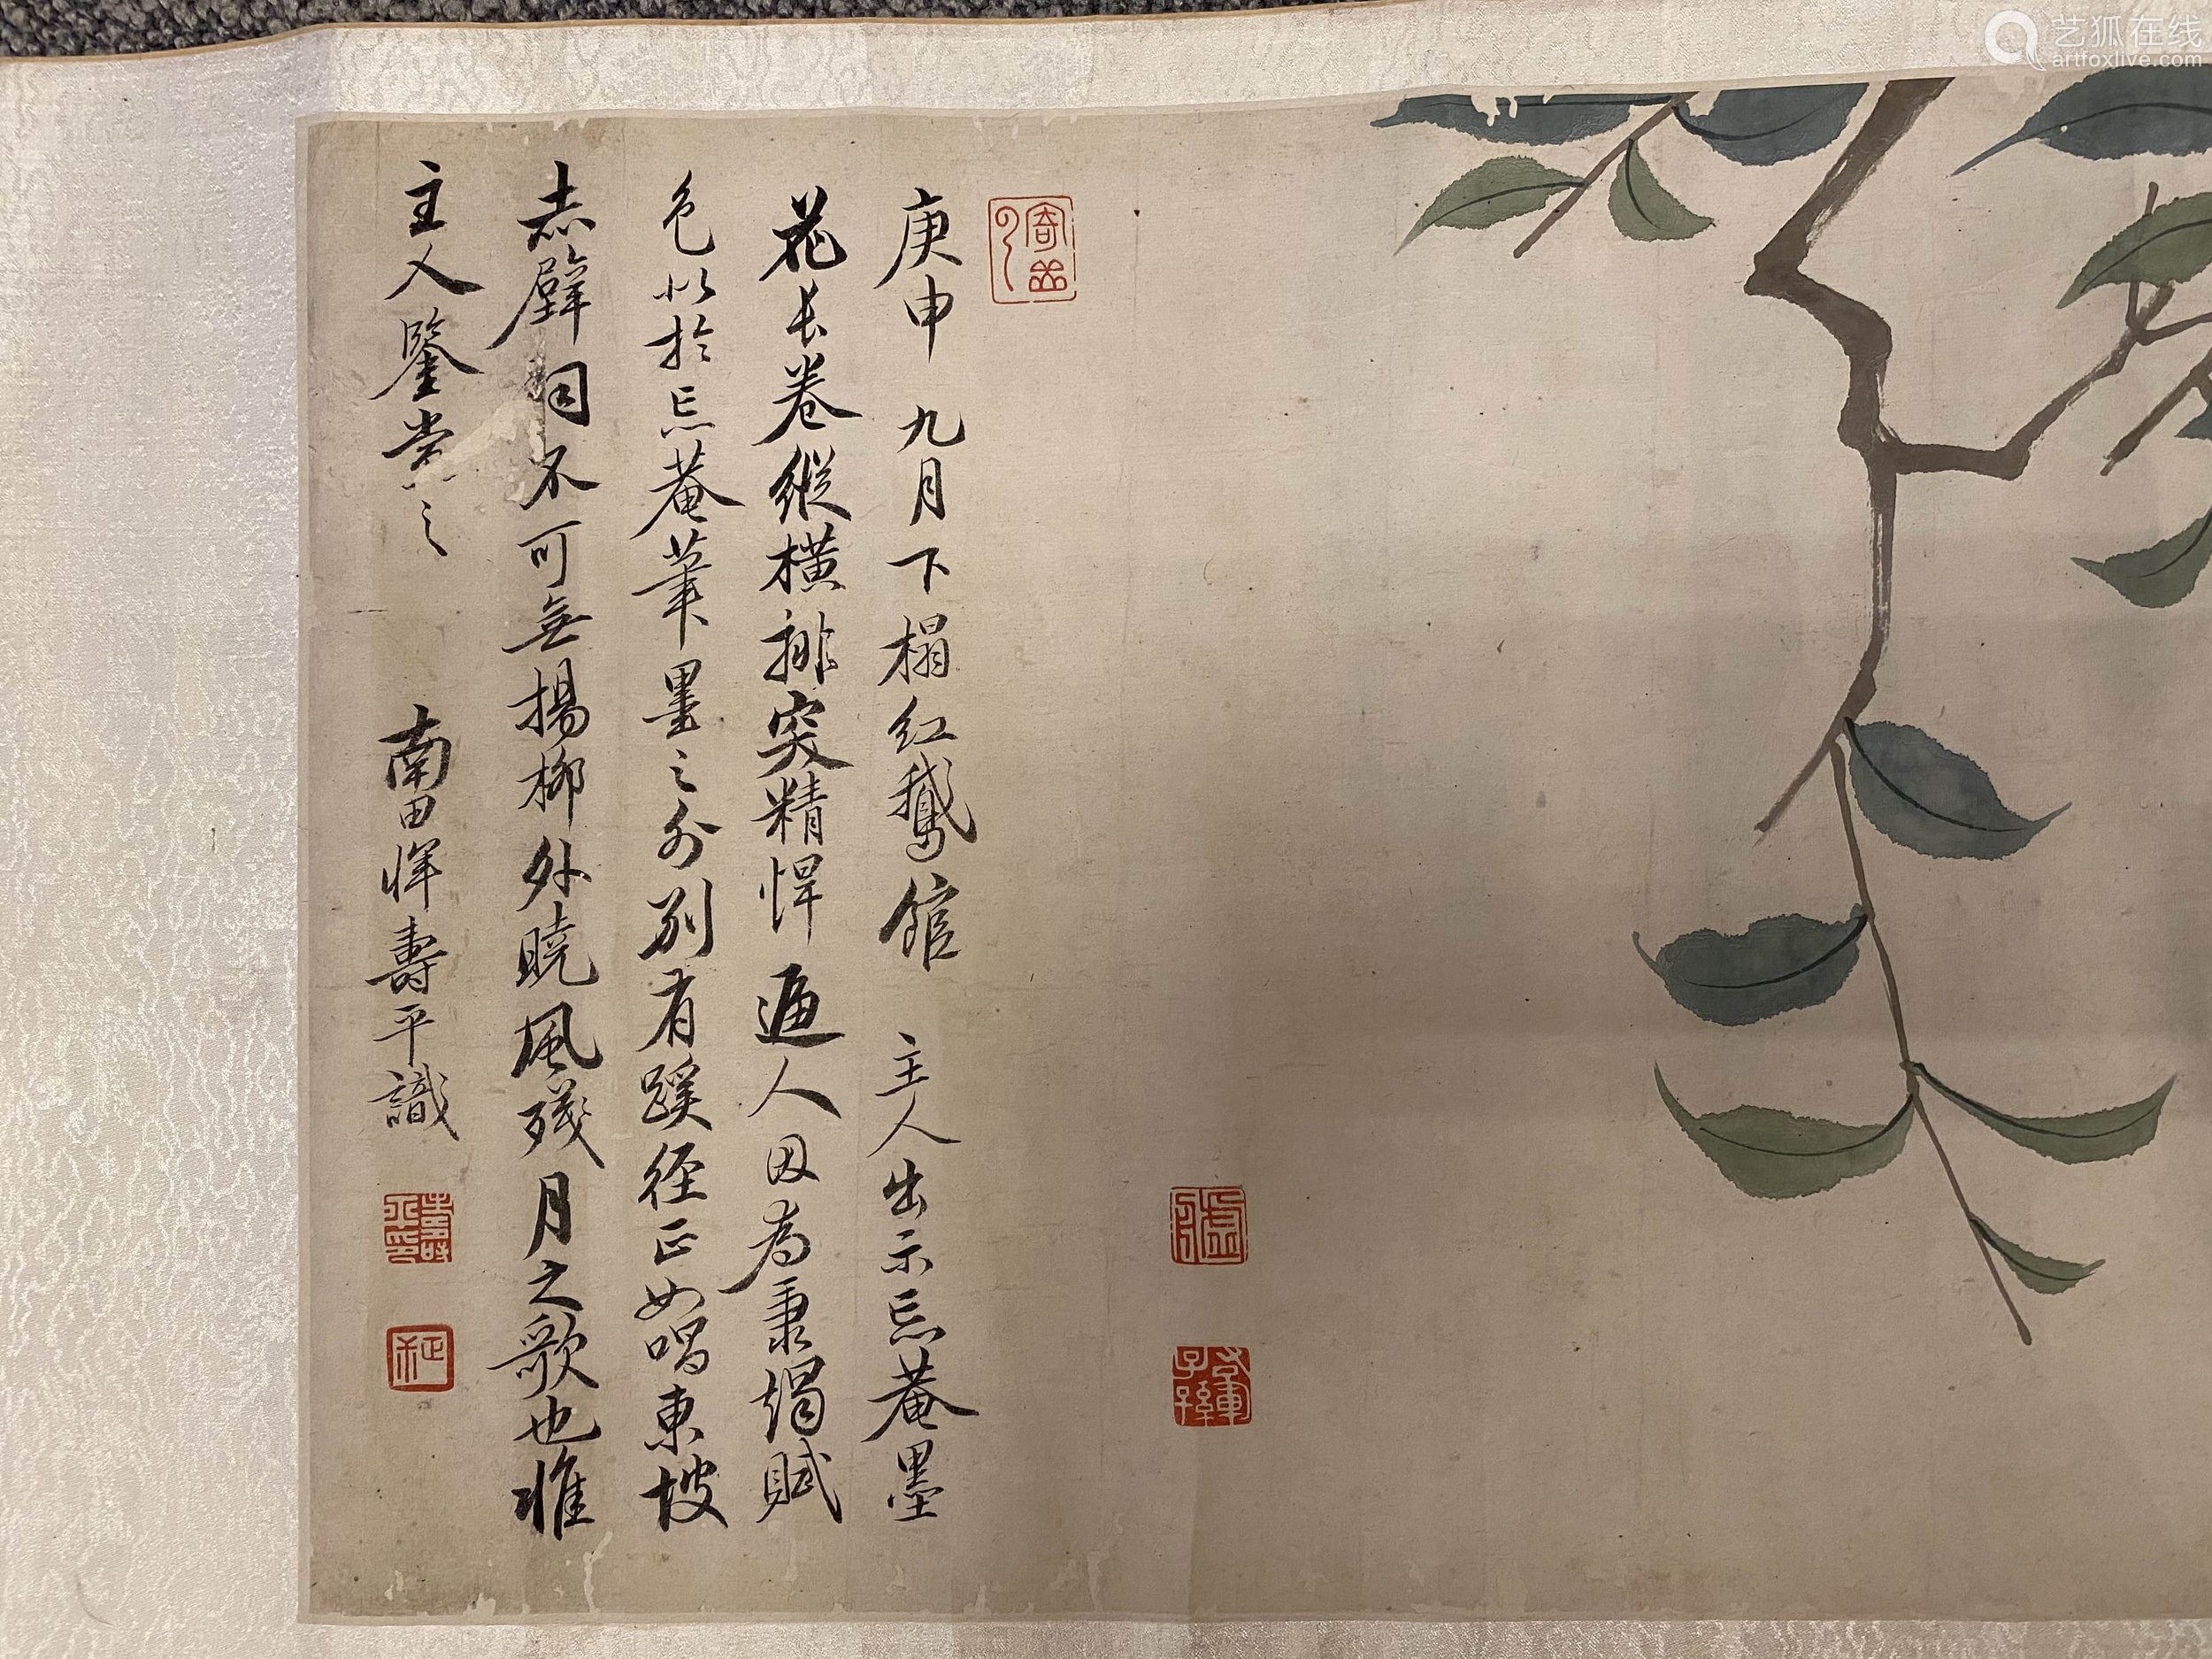 庚申九月下榻紅鵝館主人出示忘菴墨
花長卷縱橫排突精悍逼人因為秉燭賦
色以於忘菴筆墨之外別有蹊徑正如唱東坡
赤壁詞不可無楊柳外曉風殘月之歌也惟
主人鑒賞之 南田惲壽平識
艺狐在线
artfoxlive.com